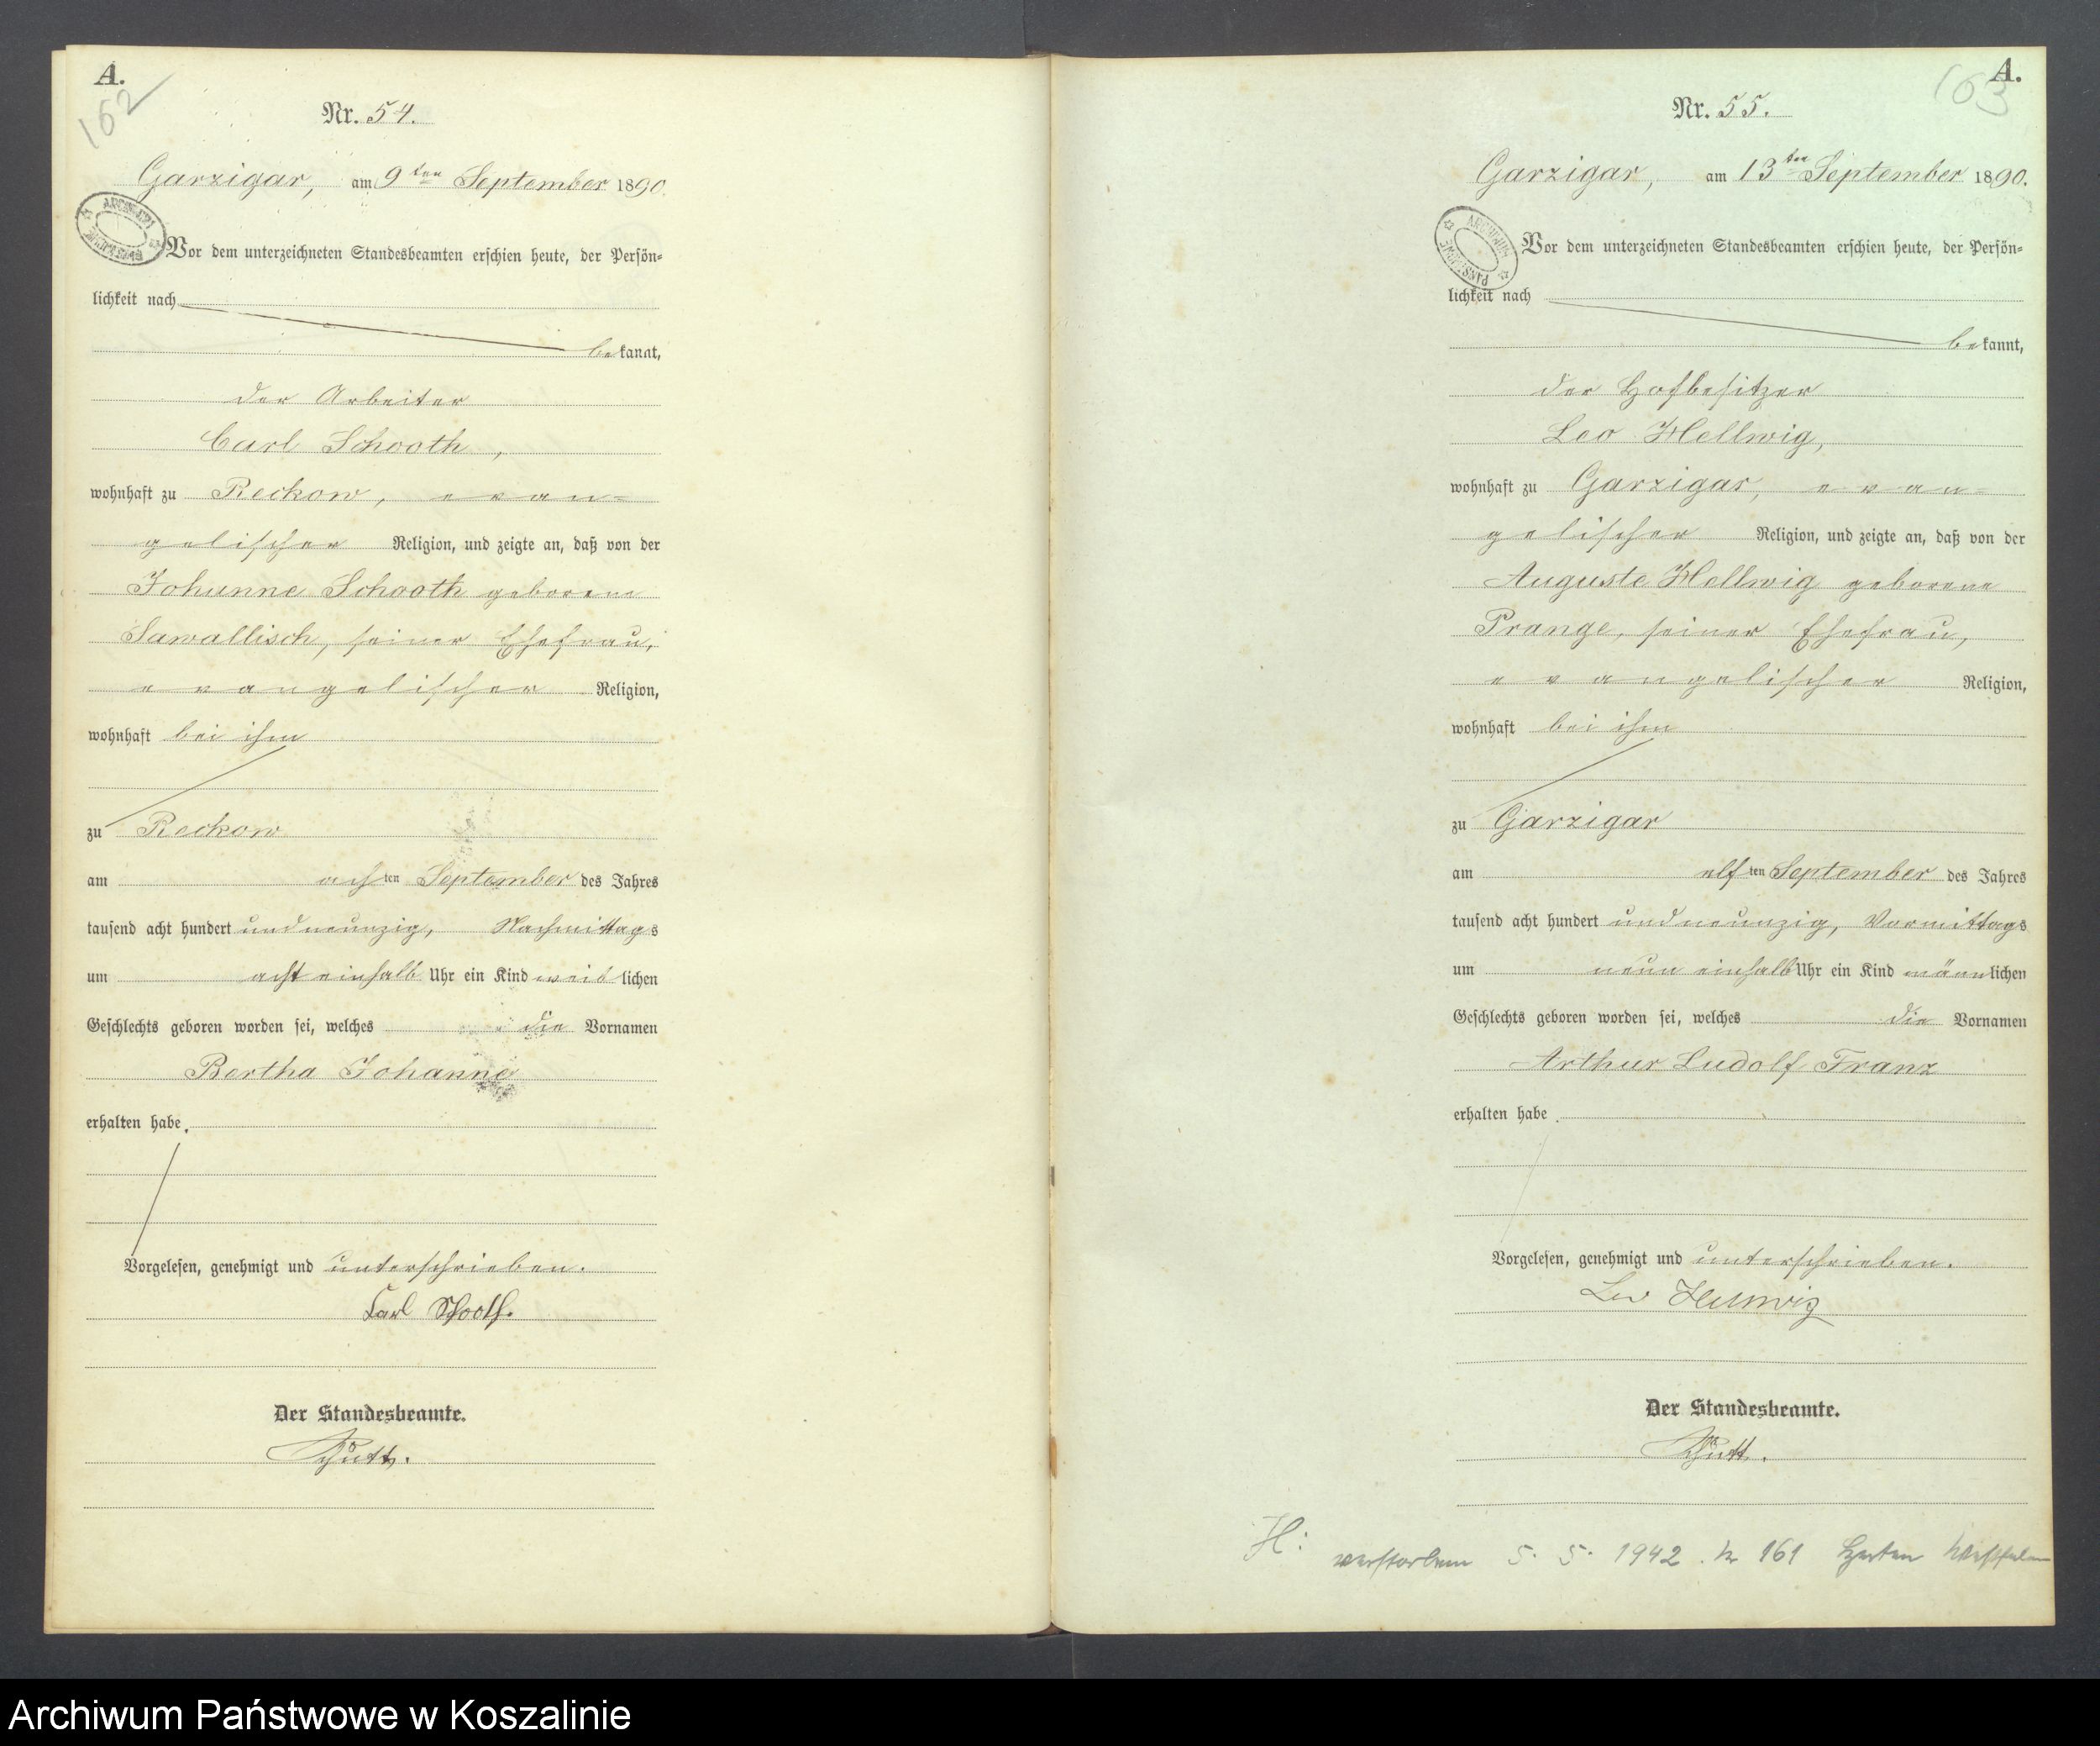 A.
162
Nr. 54.
Garzigar, am 9ten September 1890.
ARCHIWUM PAŃSTWOWE
Vor dem unterzeichneten Standesbeamten erschien heute, der Persön-
lichkeit nach
bekannt,
der Arbeiter
Carl Schooth,
wohnhaft zu Reckow, evan-
gelischer Religion, und zeigte an, daß von der
Johanne Schooth geborene
Sawallisch, seiner Ehefrau,
evangelischer Religion,
wohnhaft bei ihm
zu Reckow
am achten September des Jahres
tausend acht hundert und neunzig, Nachmittags
um acht einhalb Uhr ein Kind weiblichen
Geschlechts geboren worden sei, welches die Vornamen
Bertha Johanne
erhalten habe.
Vorgelesen, genehmigt und unterschrieben.
Carl Schooth.
Der Standesbeamte.
Schütt.
A.
163
Nr. 55.
Garzigar, am 13ten September 1890.
ARCHIWUM PAŃSTWOWE
Vor dem unterzeichneten Standesbeamten erschien heute, der Persön-
lichkeit nach
bekannt,
der Hofbesitzer
Leo Hellwig,
wohnhaft zu Garzigar, evan-
gelischer Religion, und zeigte an, daß von der
Auguste Hellwig geborene
Prange, seiner Ehefrau,
evangelischer Religion,
wohnhaft bei ihm
zu Garzigar
am elften September des Jahres
tausend acht hundert und neunzig, Vormittags
um neun einhalb Uhr ein Kind männlichen
Geschlechts geboren worden sei, welches die Vornamen
Arthur Ludolf Franz
erhalten habe.
Vorgelesen, genehmigt und unterschrieben.
Leo Hellwig
Der Standesbeamte.
Schütt.
H: verstorben 5. 5. 1942. Nr 161 Herten Westfalen
Archiwum Państwowe w Koszalinie